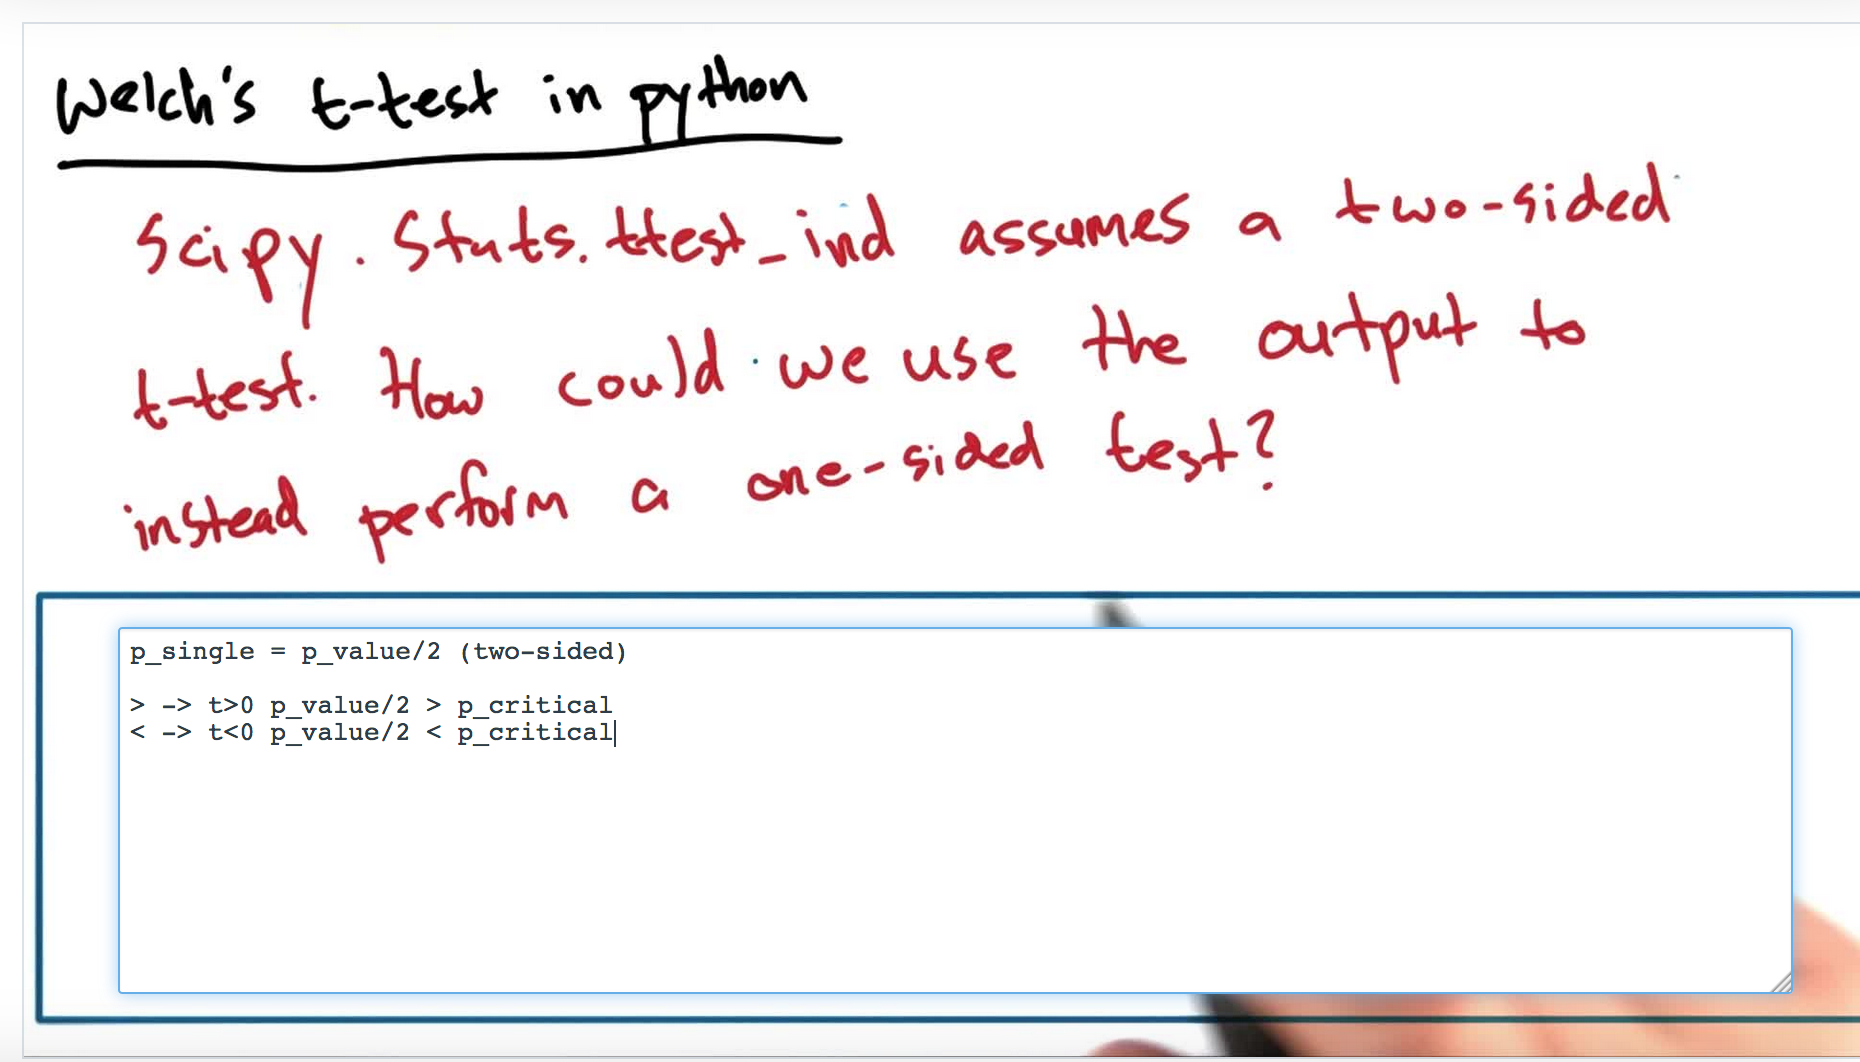 Welch's t-test in python
Scipy. Stats. ttest_ind assumes a two-sided
t-test. How could we use the output to
instead perform a one-sided test?
p_single = p_value/2 (two-sided)
> -> t>0 p_value/2 > p_critical
< -> t<0 p_value/2 < p_critical